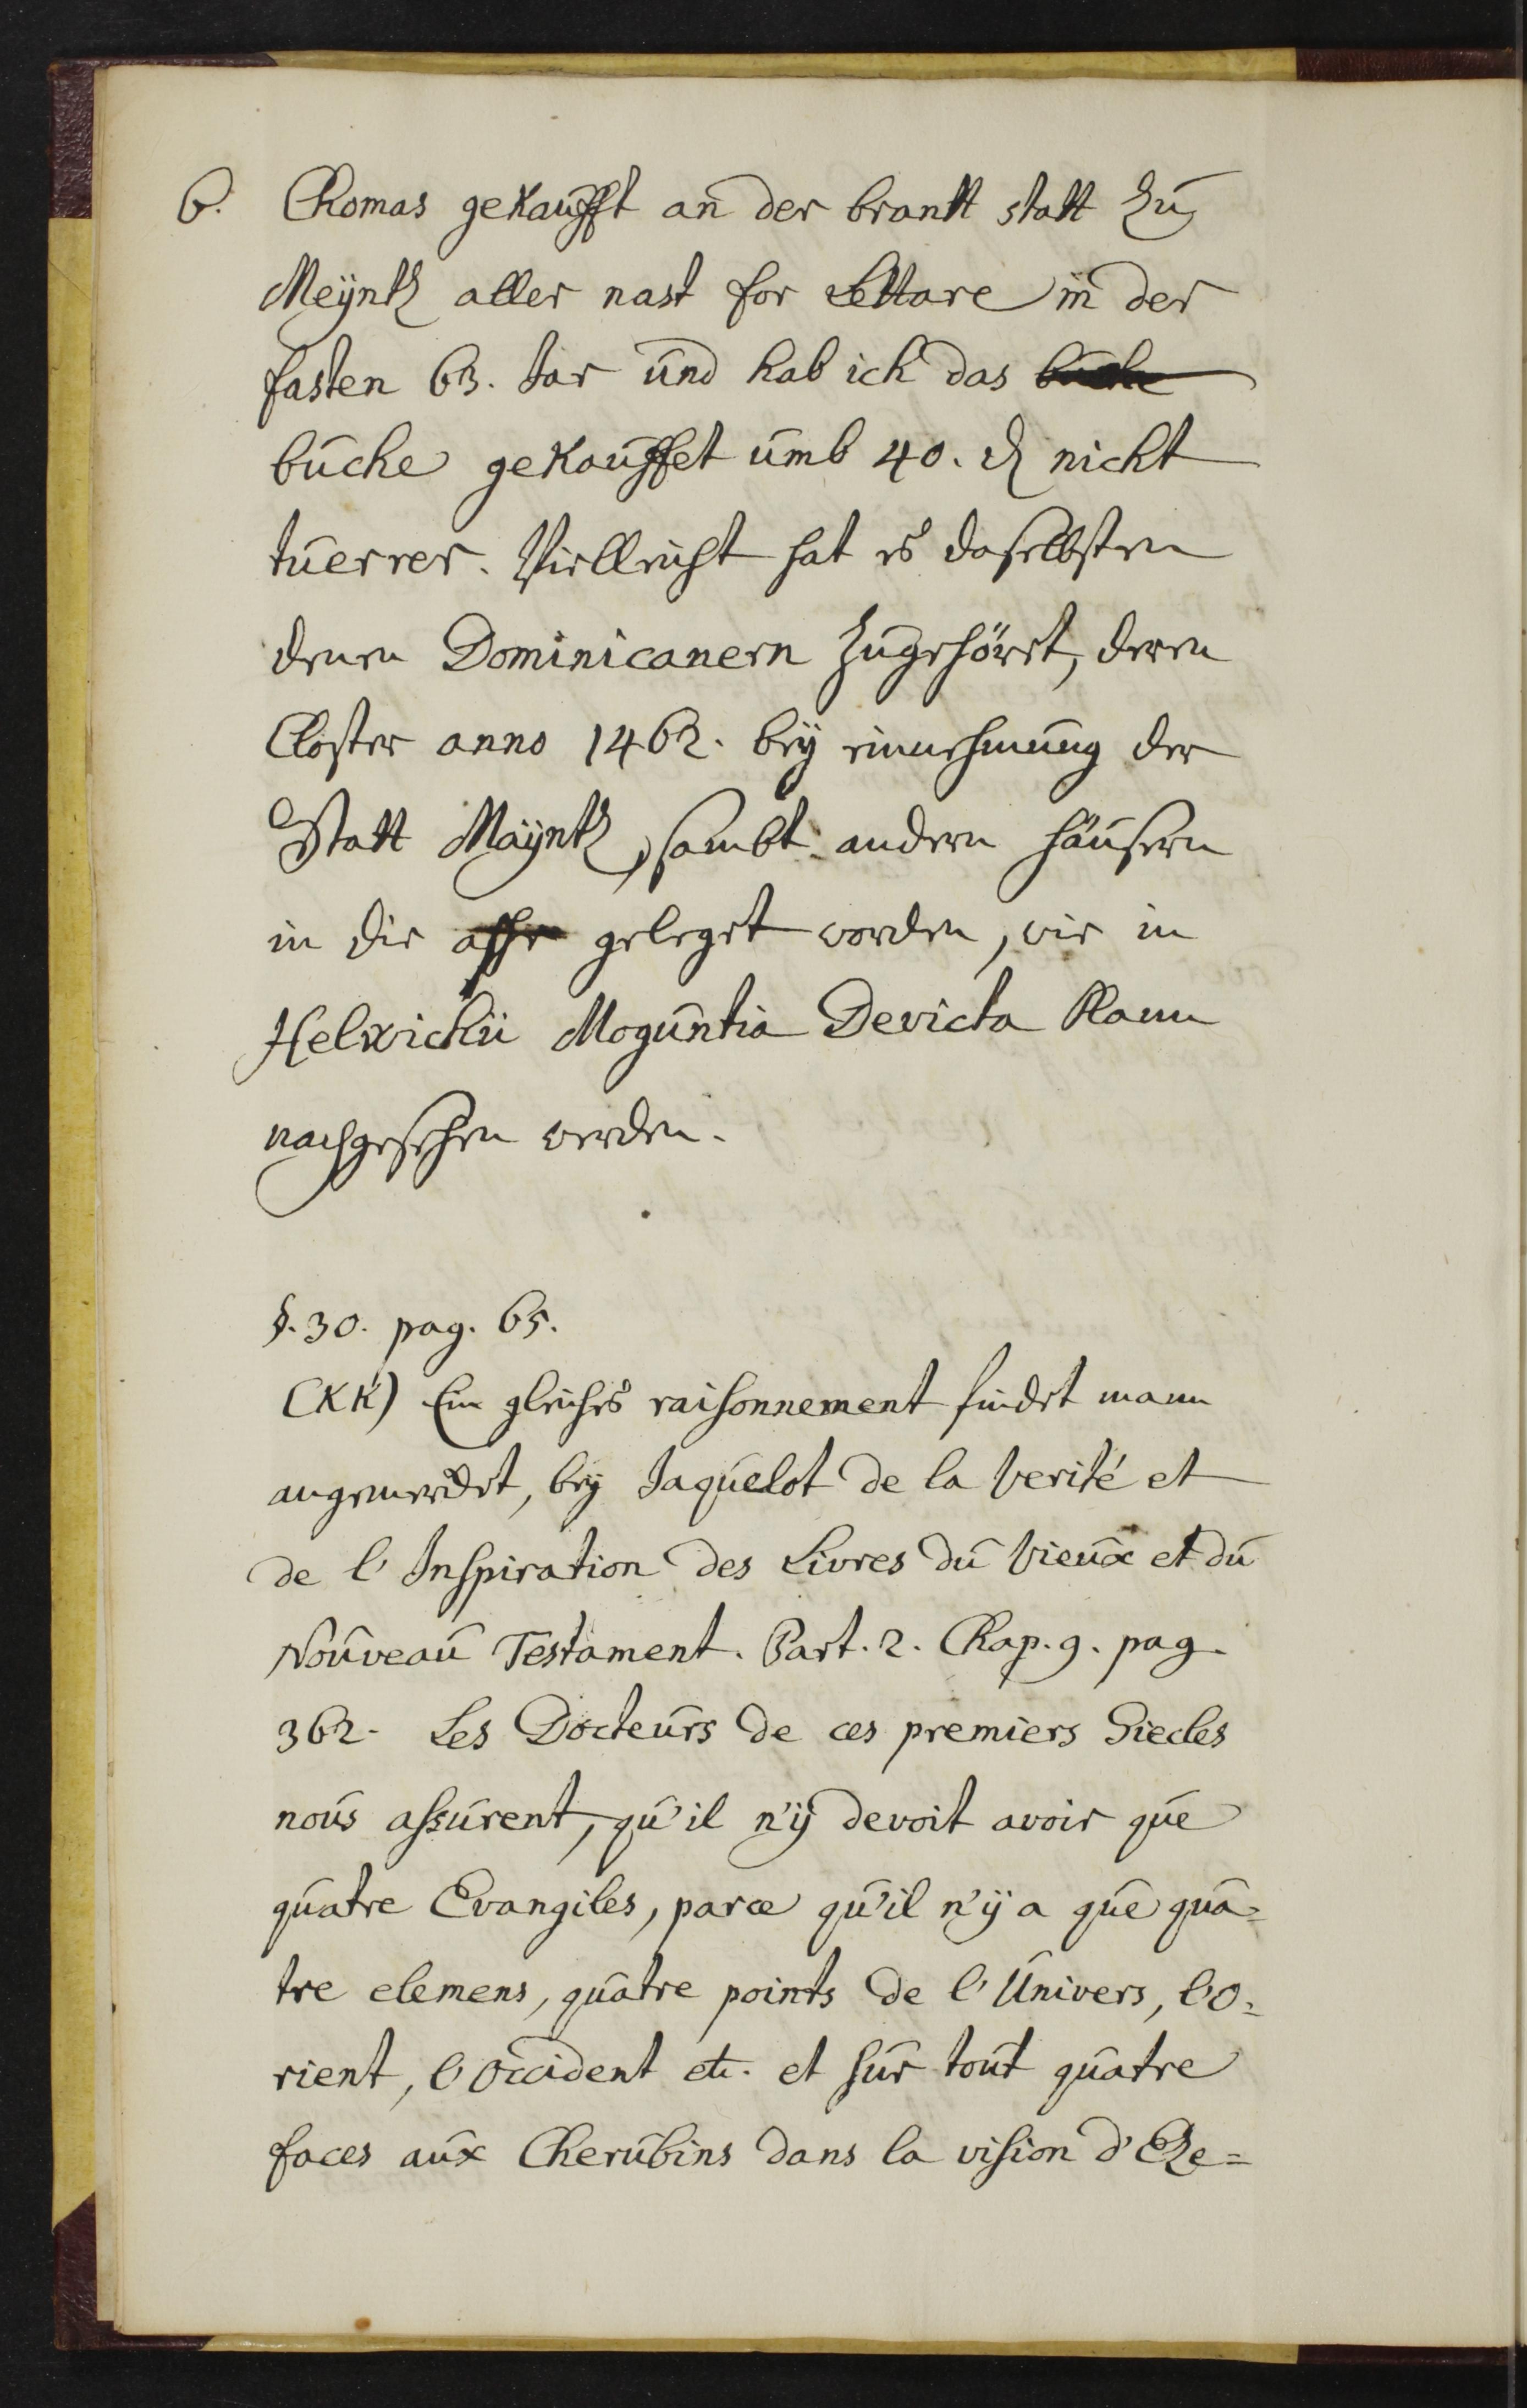 6. Chomas gekaufft an der brantt statt zu
Meÿntz aller nast for Lettare in der
fasten 63. Jar und hab ich das buche
buche gekauffet umb 40. ₰ nicht
tuerrer. Vielleicht hat es daselbsten
denen Dominicanern zugehört, deren
Closter anno 1462. beÿ einnehmung der
Statt Maÿntz, sambt andern häusern
in die asche geleget worden, wie in
Helwichii Moguntia Devicta kann
nachgesehen werden.
§. 30. pag. 65.
(KK) Ein gleiches raisonnement findet mann
angewendet, beÿ Jaquelot de la Verité et
de l'Inspiration des Livres du Vieux et du
Nouveau Testament. Part. 2. Chap. 9. pag.
362. Les Docteurs de ces premiers Siecles
nous assurent, qu'il n'ÿ devoit avoir que
quatre Evangiles, parce qu'il n'ÿ a que qua=
tre elemens, quatre points de l'Univers, l'O=
rient, l'Occident etc. et sur tout quatre
faces aux Cherubins dans la vision d'Eze=